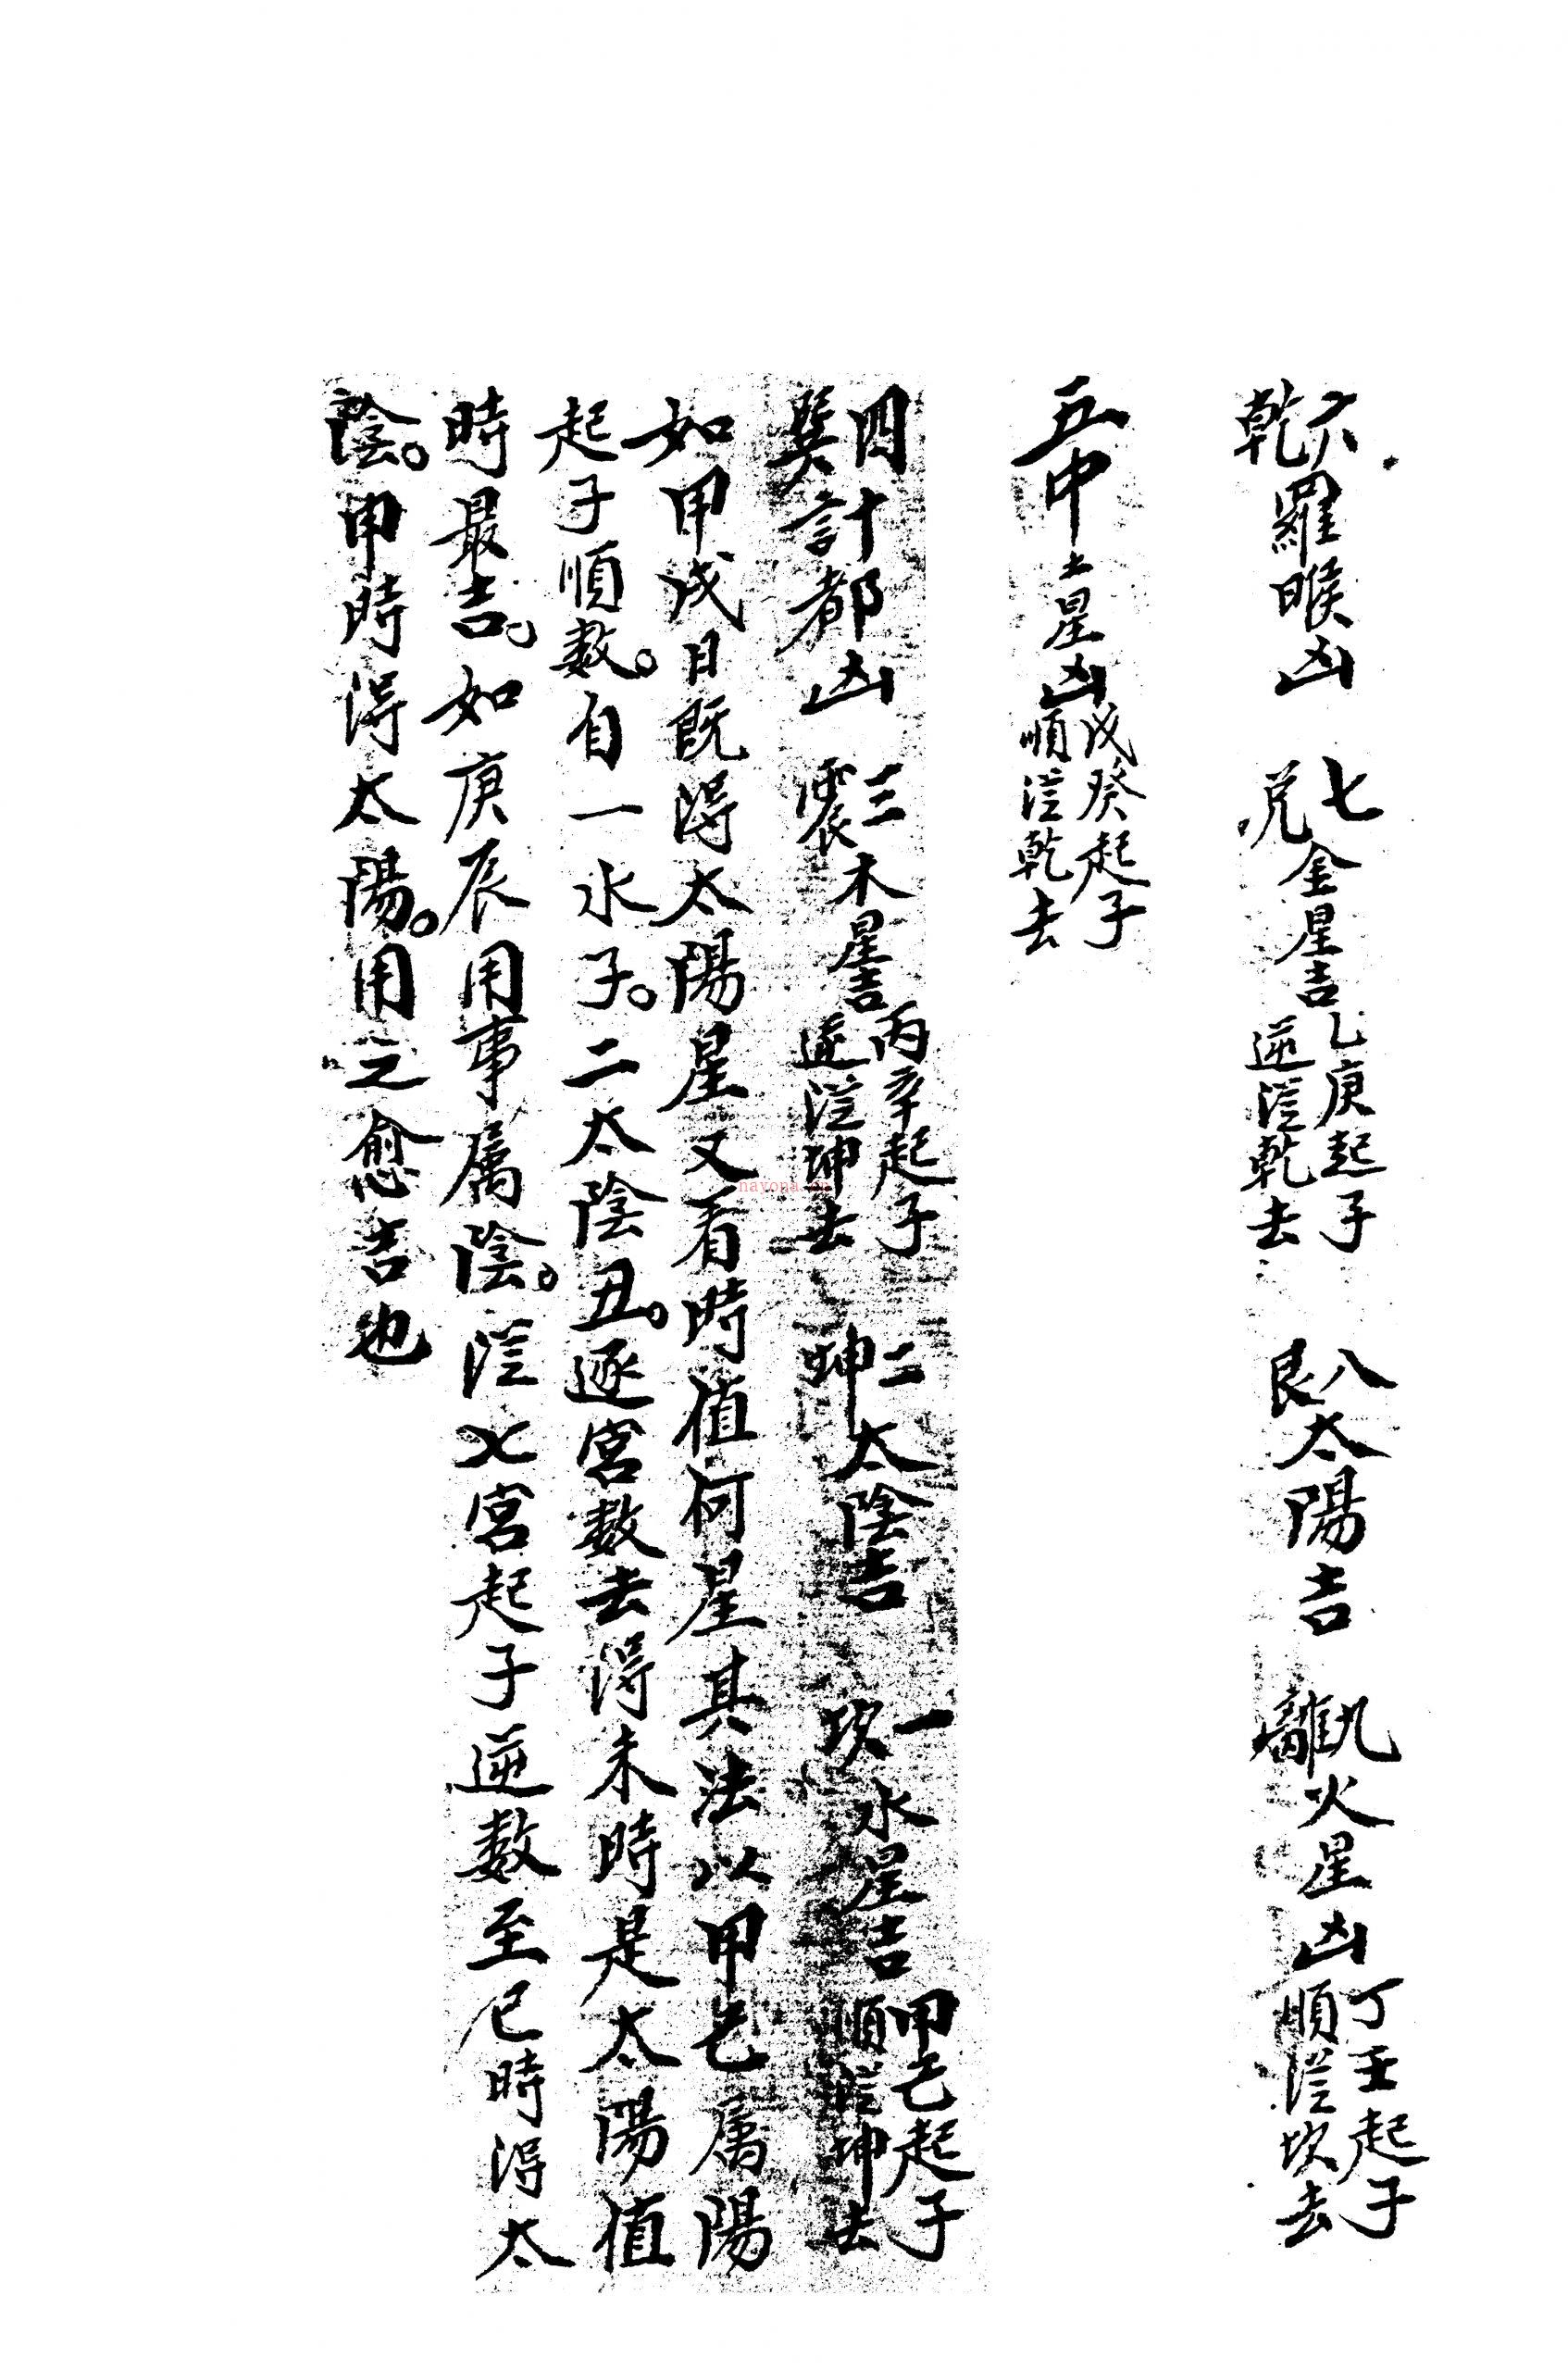 六乾羅睺凶　七兌金星吉乙庚起子逆從乾去　八艮太陽吉　九離火星凶丁壬起子順從坎去
五中土星凶戊癸起子順從乾去
四巽計都凶　三震木星吉丙辛起子逆從坤去　二坤太陰吉　一坎水星吉甲己起子順從坤去
如甲戌日既得太陽星又看時值何星其法以甲己属陽
起子順数。自一水子。二太陰丑。逐宮数去得未時是太陽值
時最吉。如庚辰用事属陰。從七宮起子逆数至巳時得太
陰。申時得太陽。用之愈吉也
nayona.cn